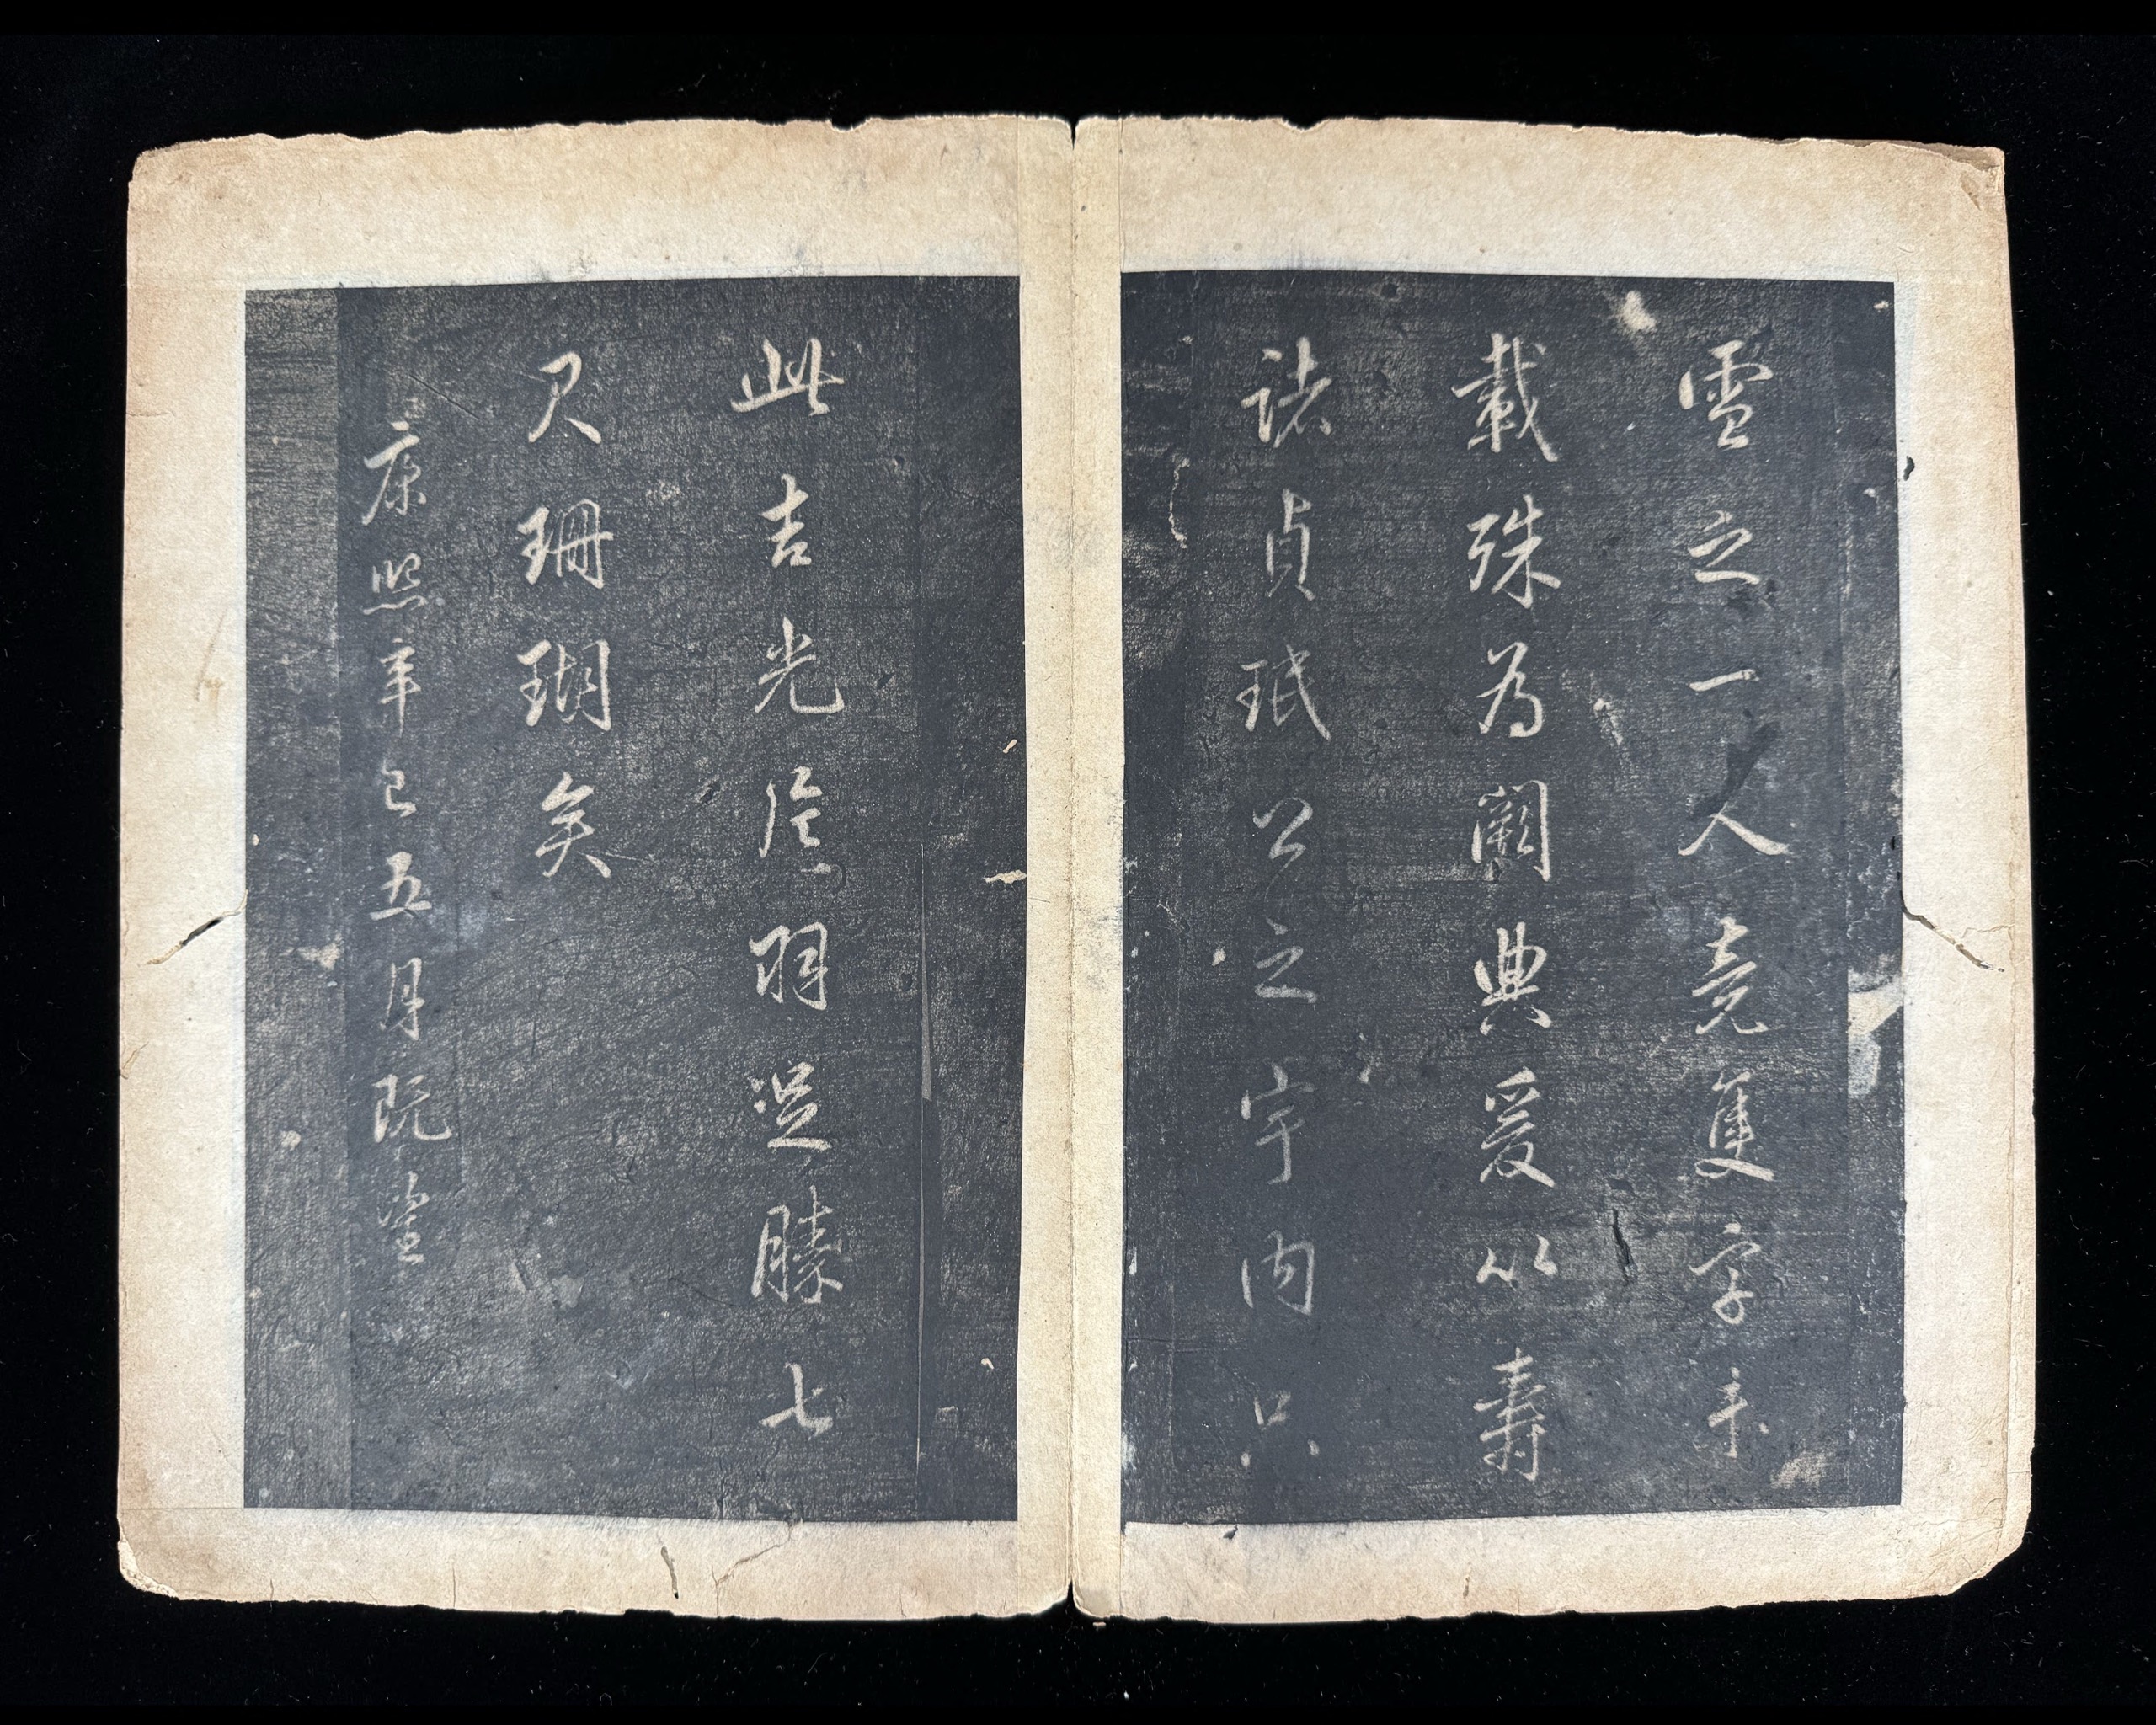 雪之一人竟隻字未
載殊為闕典爰以壽
諸貞珉公之宇內只
此吉光羽勝七
尺珊瑚矣
康熙辛巳五月既望